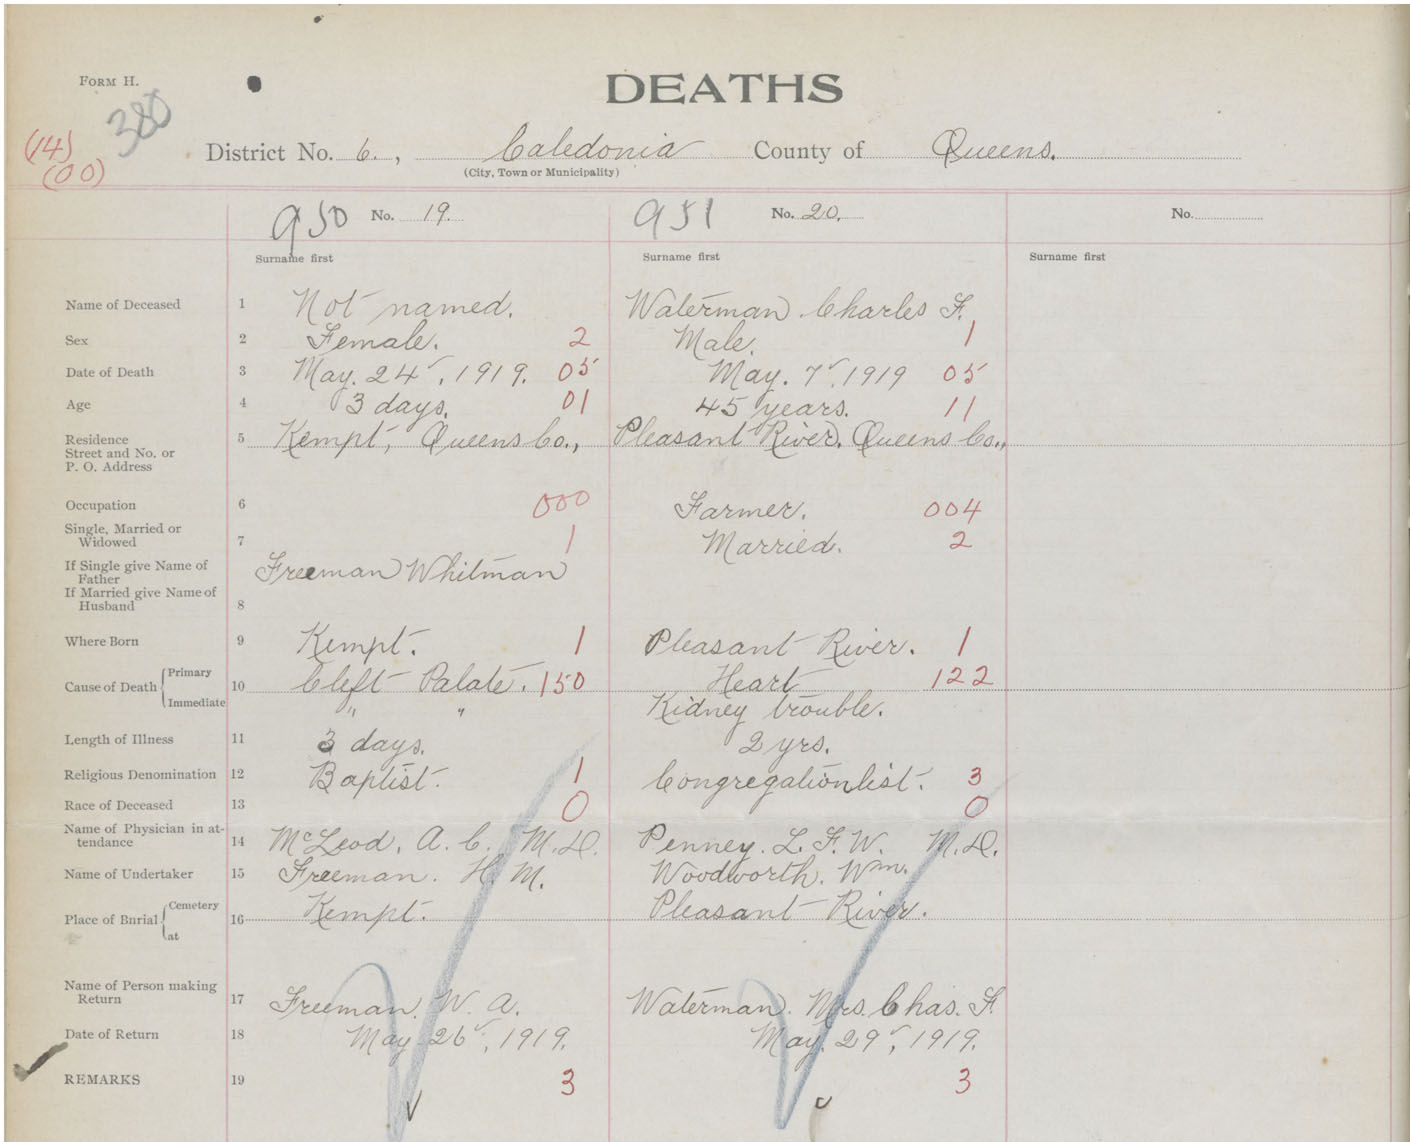 FORM H.
DEATHS
380
(14)
(00)
District No. 6., Caledonia County of Queens.
(City, Town or Municipality)
950 No. 19. 951 No. 20. No.
Surname first Surname first Surname first
Name of Deceased 1 Not named. Waterman. Charles F.
Sex 2 Female. 2 Male. 1
Date of Death 3 May. 24", 1919. 05 May. 7", 1919 05
Age 4 3 days. 01 45 years. 11
Residence
Street and No. or
P. O. Address 5 Kempt, Queens Co., Pleasant River, Queens Co.,
Occupation 6 000 Farmer. 004
Single, Married or
Widowed 7 1 Married. 2
If Single give Name of
Father Freeman Whitman
If Married give Name of
Husband 8
Where Born 9 Kempt. 1 Pleasant River. 1
Cause of Death Primary 10 Cleft Palate. 150 Heart 122
Immediate " " Kidney trouble.
Length of Illness 11 3 days. 2 yrs.
Religious Denomination 12 Baptist. 1 Congregationlist. 3
Race of Deceased 13 0 0
Name of Physician in at-
tendance 14 McLeod. A. C. M.D. Penney. L. F. W. M.D.
Name of Undertaker 15 Freeman. H. M. Woodworth. Wm.
Place of Bnrial Cemetery 16 Kempt. Pleasant River.
at
Name of Person making
Return 17 Freeman. W. A. Waterman. Mrs. Chas. F.
Date of Return 18 May 26", 1919. May. 29", 1919.
REMARKS 19 3 3